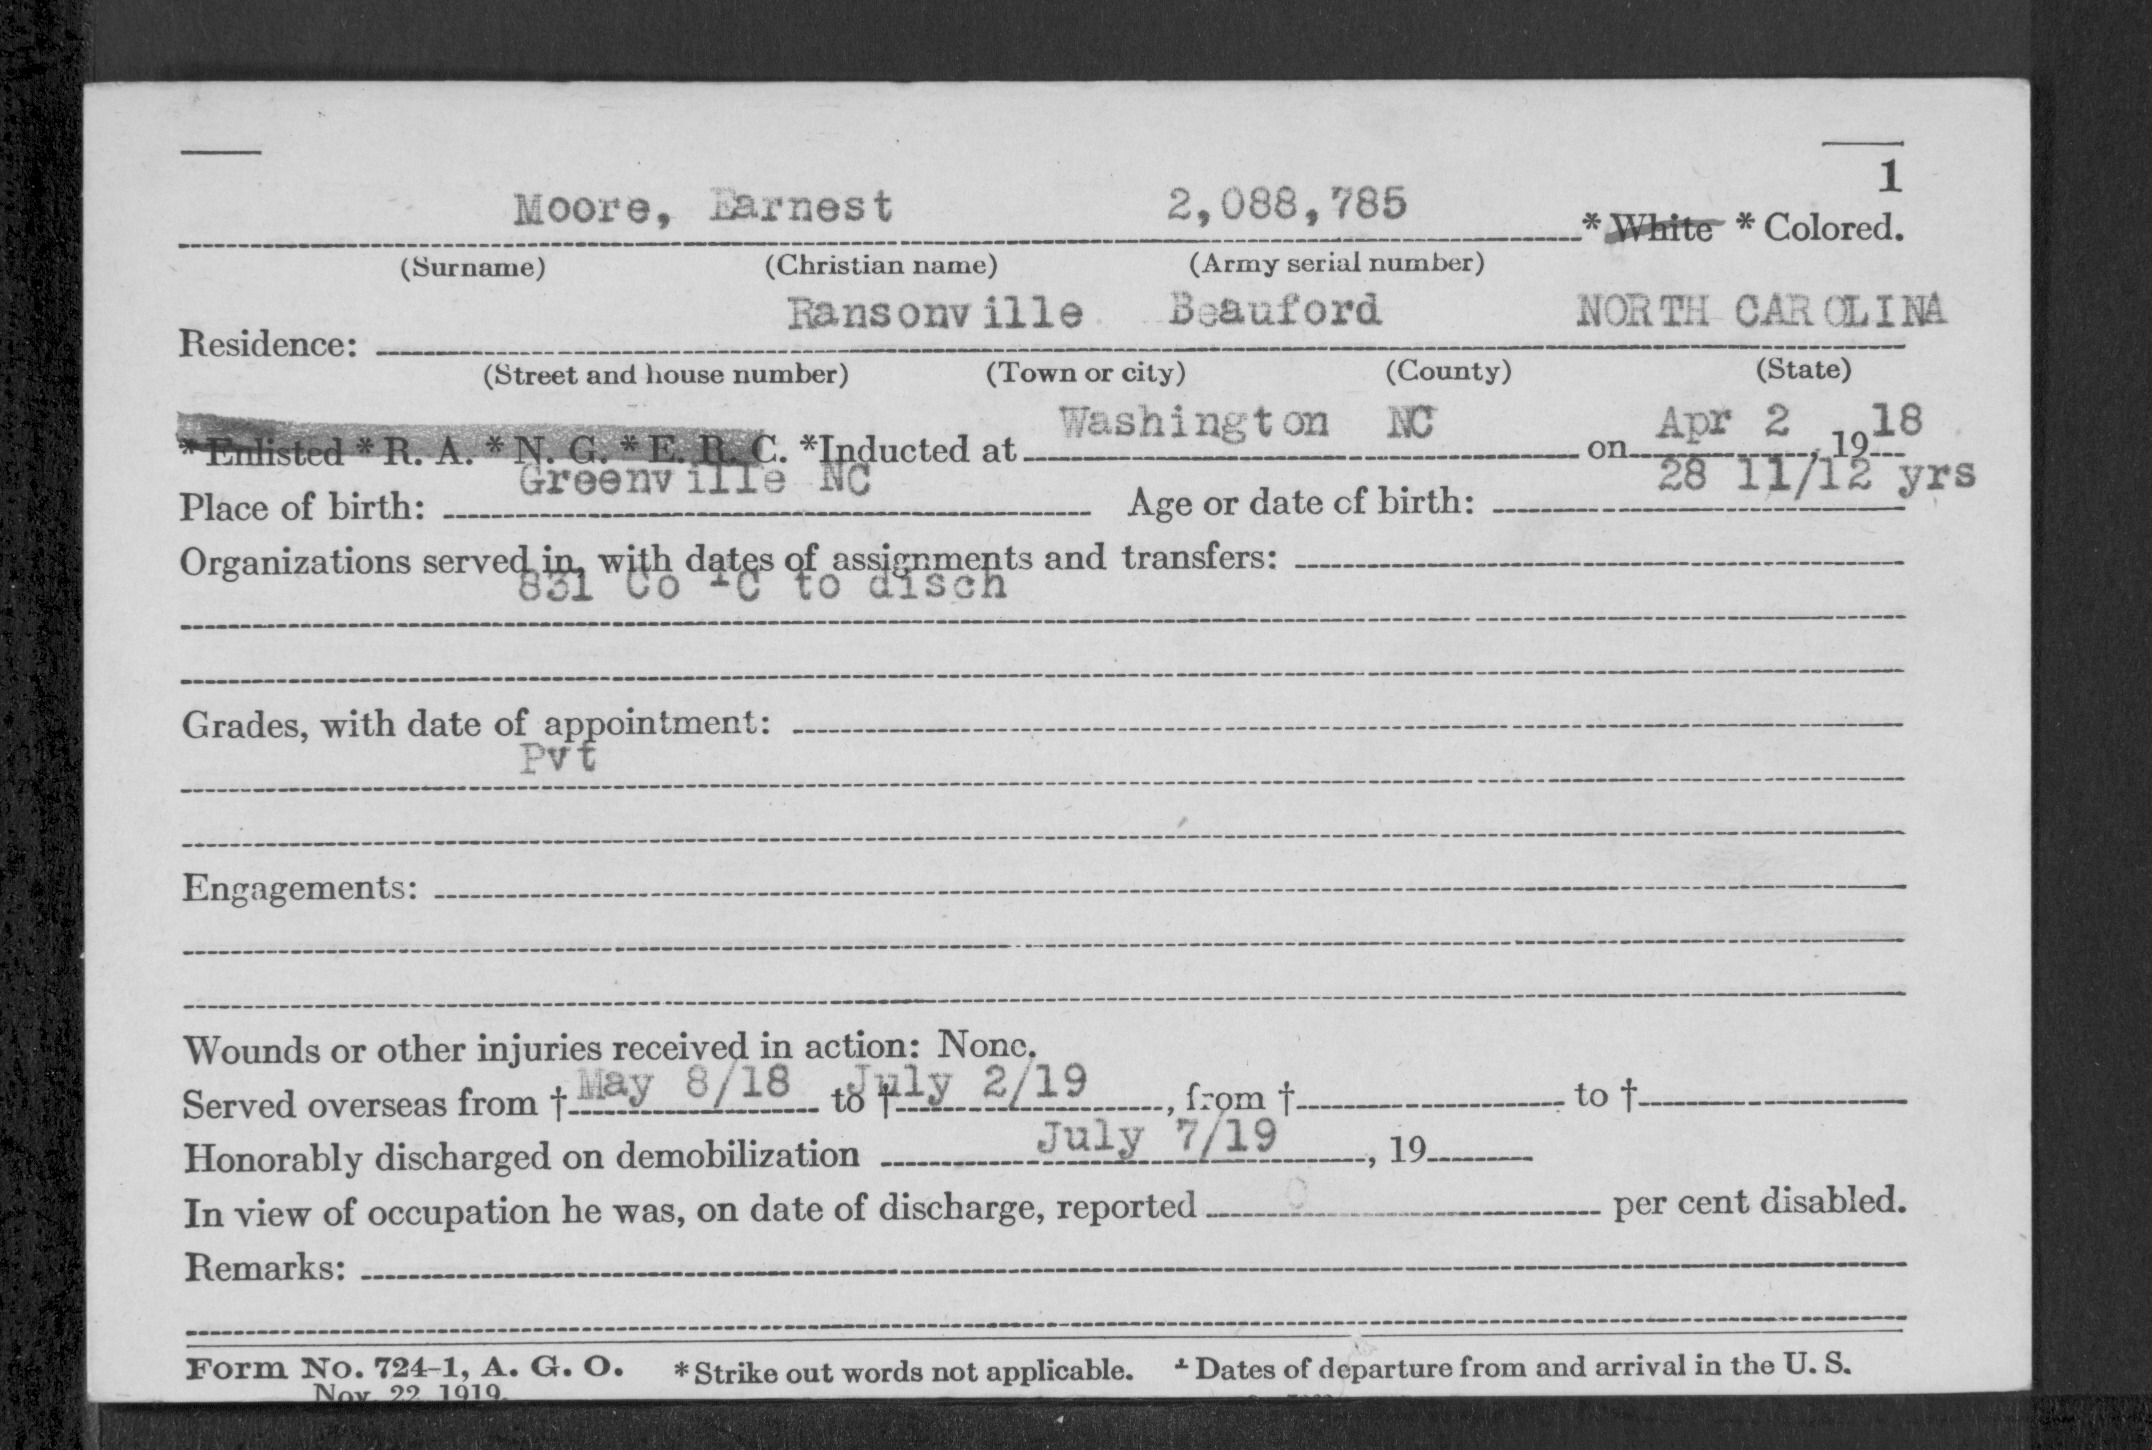 1
Moore, Earnest 2,088,785 * White * Colored.
(Surname) (Christian name) (Army serial number)
Ransonville Beauford NORTH CAROLINA
Residence:
(Street and house number) (Town or city) (County) (State)
*Enlisted *R. A. *N. G. *E. R. C. *Inducted at Washington NC on Apr 2, 1918
Place of birth: Greenville NC Age or date of birth: 28 11/12 yrs
Organizations served in, with dates of assignments and transfers:
831 Co TC to disch
Grades, with date of appointment:
Pvt
Engagements:
Wounds or other injuries received in action: None.
Served overseas from † May 8/18 to † July 2/19, from † to †
Honorably discharged on demobilization July 7/19, 19
In view of occupation he was, on date of discharge, reported 0 per cent disabled.
Remarks:
Form No. 724-1, A. G. O. *Strike out words not applicable. † Dates of departure from and arrival in the U. S.
Nov. 22, 1919.